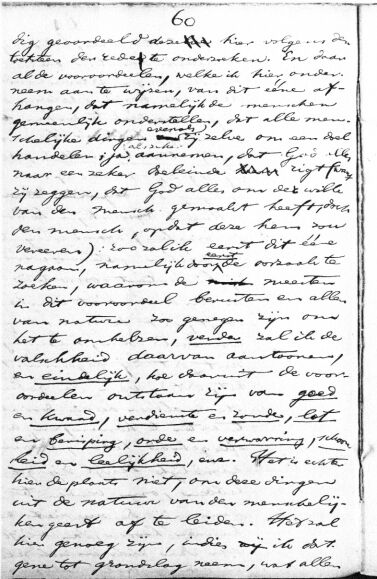 60
dig geoordeeld deze hier volgens den
toetsteen der rede te onderzoeken. En daar
al de vooroordeelen, welke ik hier onder-
neem aan te wijzen, van dit ééne af-
hangen, dat namelijk de menschen
gemeenlijk onderstellen, dat alle
dingen evenals zij zelve om een doel
handelen, ja, aannemen, dat God alles
naar een zeker rigt (want
zij zeggen, dat God alles om de wille
van den mensch gemaakt heeft, doch
den mensch, opdat deze hem zou
vereeren): zoo zal ik eerst dit ééne
nagaan, namelijk door eerst de oorzaak te
zoeken, waarom de meesten
in dit vooroordeel berusten en allen
van nature zoo genegen zijn om
het te omhelzen, verder zal ik de
valschheid daarvan aantoonen,
en eindelijk, hoe daaruit de voor-
oordeelen ontstaan zijn van goed
en kwaad, verdienste en zonde, lof
en berisping, orde en verwarring, schoon-
heid en leelijkheid, enz. Het is echter
hier de plaats niet, om deze dingen
uit de natuur van den menschelij-
ken geest af te leiden. Het zal
hier genoeg zijn, indien ik dat-
gene tot grondslag neem, wat allen